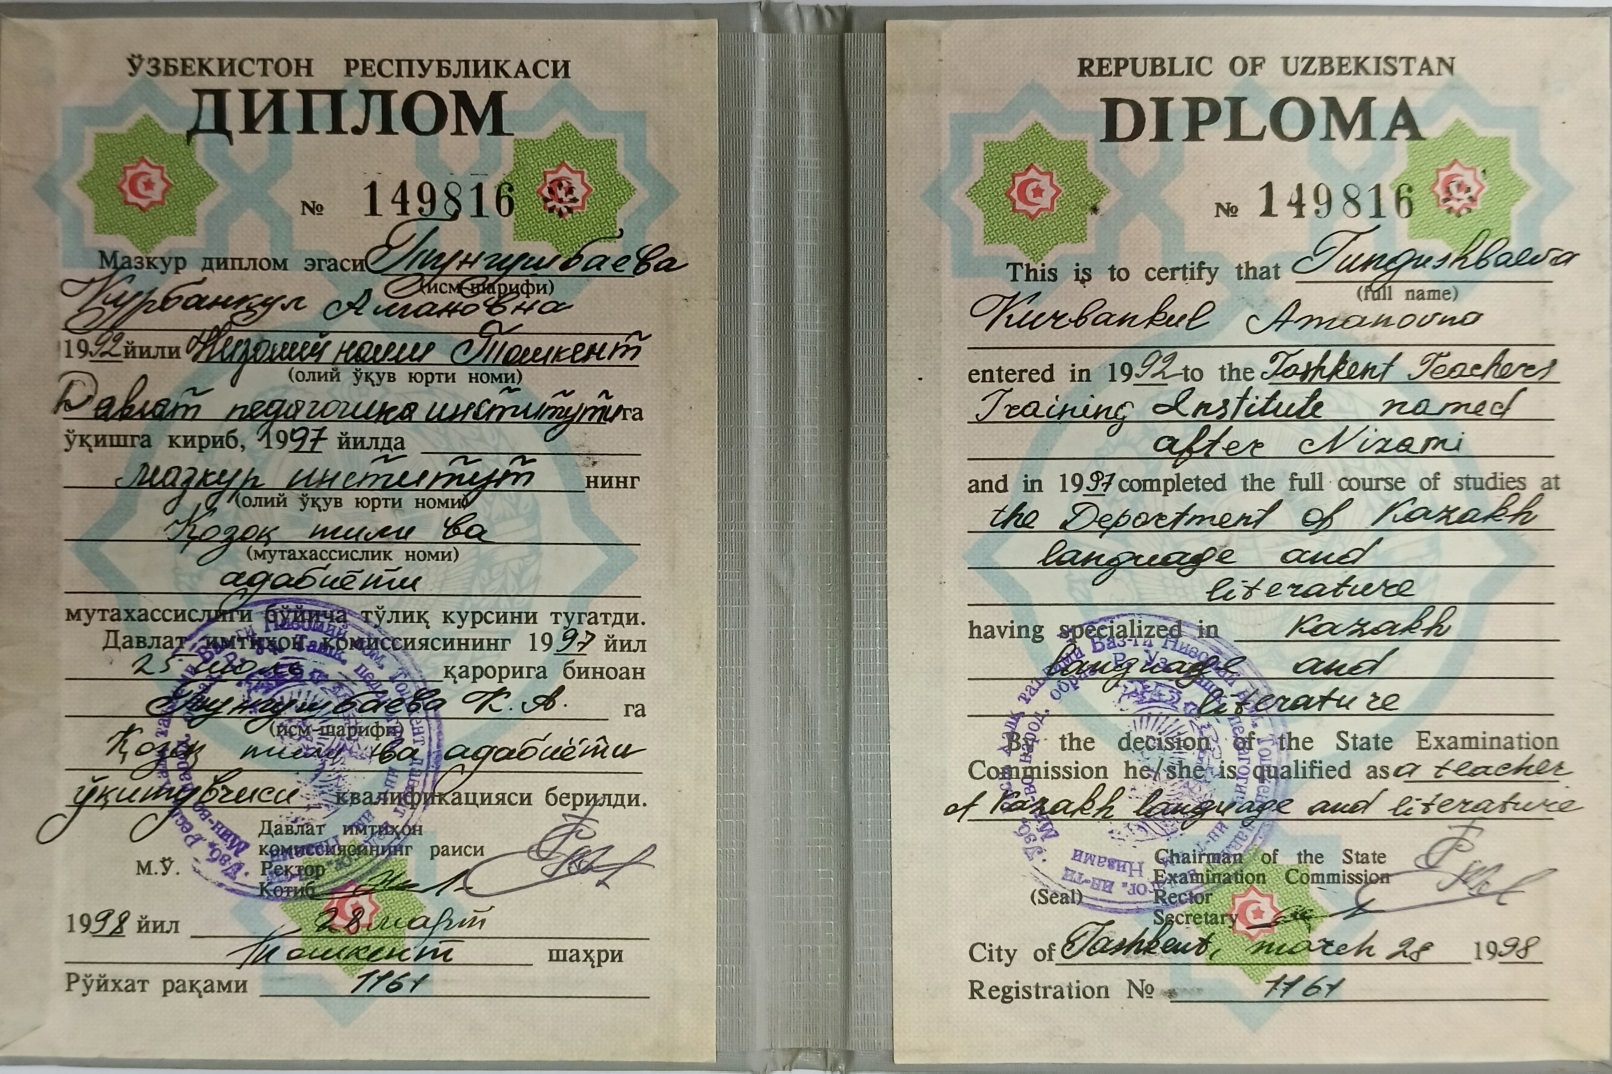 ЎЗБЕКИСТОН РЕСПУБЛИКАСИ
ДИПЛОМ
№ 149816
Мазкур диплом эгаси Тунгушбаева
(исм-шарифи)
Курбанкул Амановна
1992 йили Низомий номли Тошкент
(олий ўқув юрти номи)
Давлат педагогика институтига
ўқишга кириб, 1997 йилда
мазкур институт нинг
(олий ўқув юрти номи)
Қозоқ тили ва
(мутахассислик номи)
адабиёти
мутахассислиги бўйича тўлиқ курсини тугатди.
Давлат имтиҳон комиссиясининг 1997 йил
25 июль қарорига биноан
Тунгушбаева К. А. га
(исм-шарифи)
Қозоқ тили ва адабиёти
ўқитувчиси квалификацияси берилди.
Давлат имтиҳон
комиссиясининг раиси
М.Ў. Ректор
Котиб
1998 йил 28 март
Тошкент шаҳри
Рўйхат рақами 1161
REPUBLIC OF UZBEKISTAN
DIPLOMA
№ 149816
This is to certify that Tungushbaeva
(full name)
Kurbankul Amanovna
entered in 1992 to the Tashkent Teachers
Training Institute named
after Nizami
and in 1997 completed the full course of studies at
the Department of Kazakh
language and
literature
having specialized in Kazakh
language and
literature
By the decision of the State Examination
Commission he/she is qualified as a teacher
of Kazakh language and literature
Chairman of the State
Examination Commission
(Seal) Rector
Secretary
City of Tashkent, march 28 1998
Registration № 1161